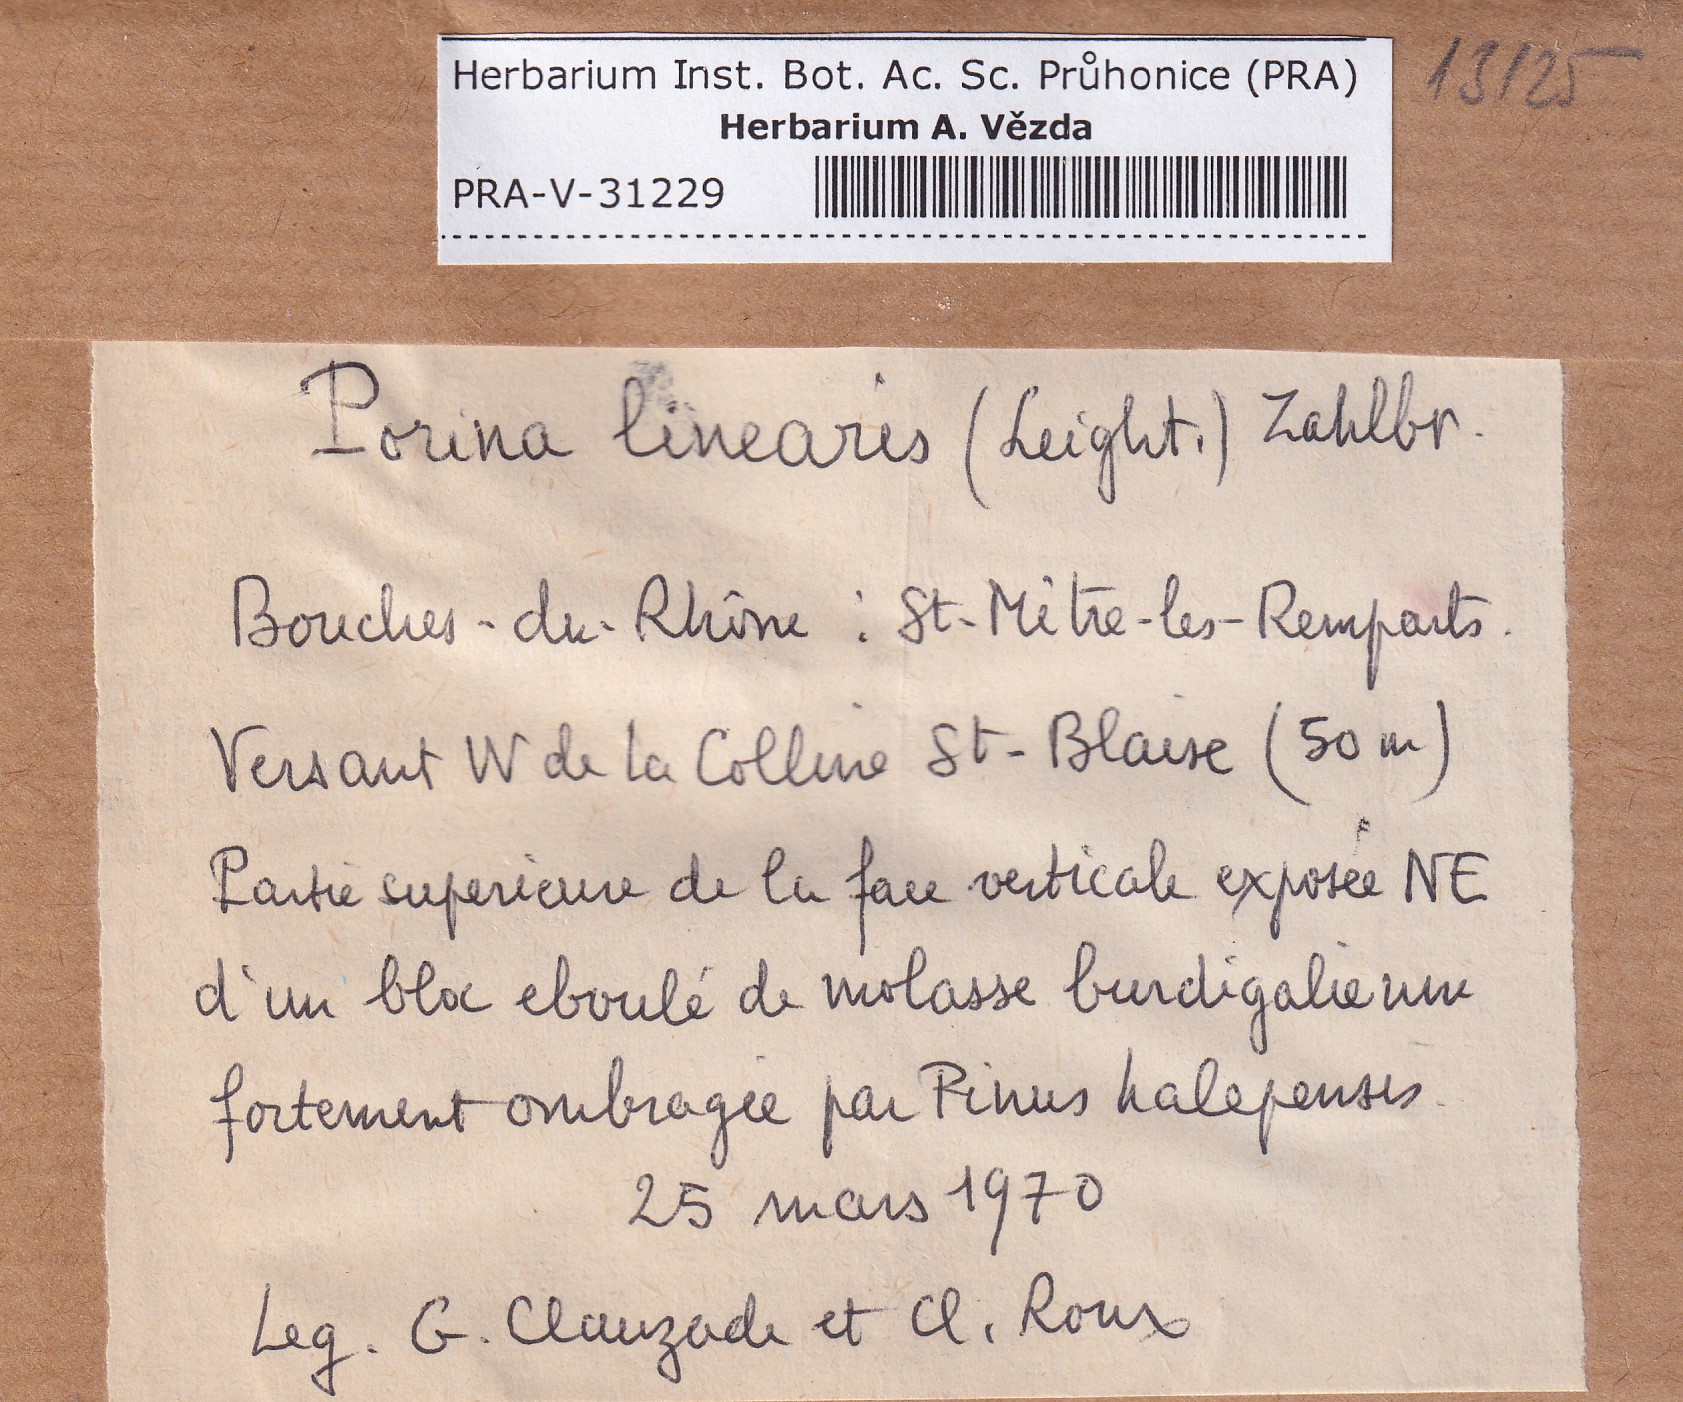 Herbarium Inst. Bot. Ac. Sc. Průhonice (PRA)
13125
Herbarium A. Vězda
PRA-V-31229
Porina linearis (Leight.) Zahlbr.
Bouches-du-Rhône : St-Mitre-les-Remparts.
Versant W de la Colline St-Blaise (50 m)
Partie superieure de la face verticale exposée NE
d'un bloc eboulé de molasse burdigalienne
fortement ombragée par Pinus halepensis.
25 mars 1970
Leg. G. Clauzade et Cl. Roux